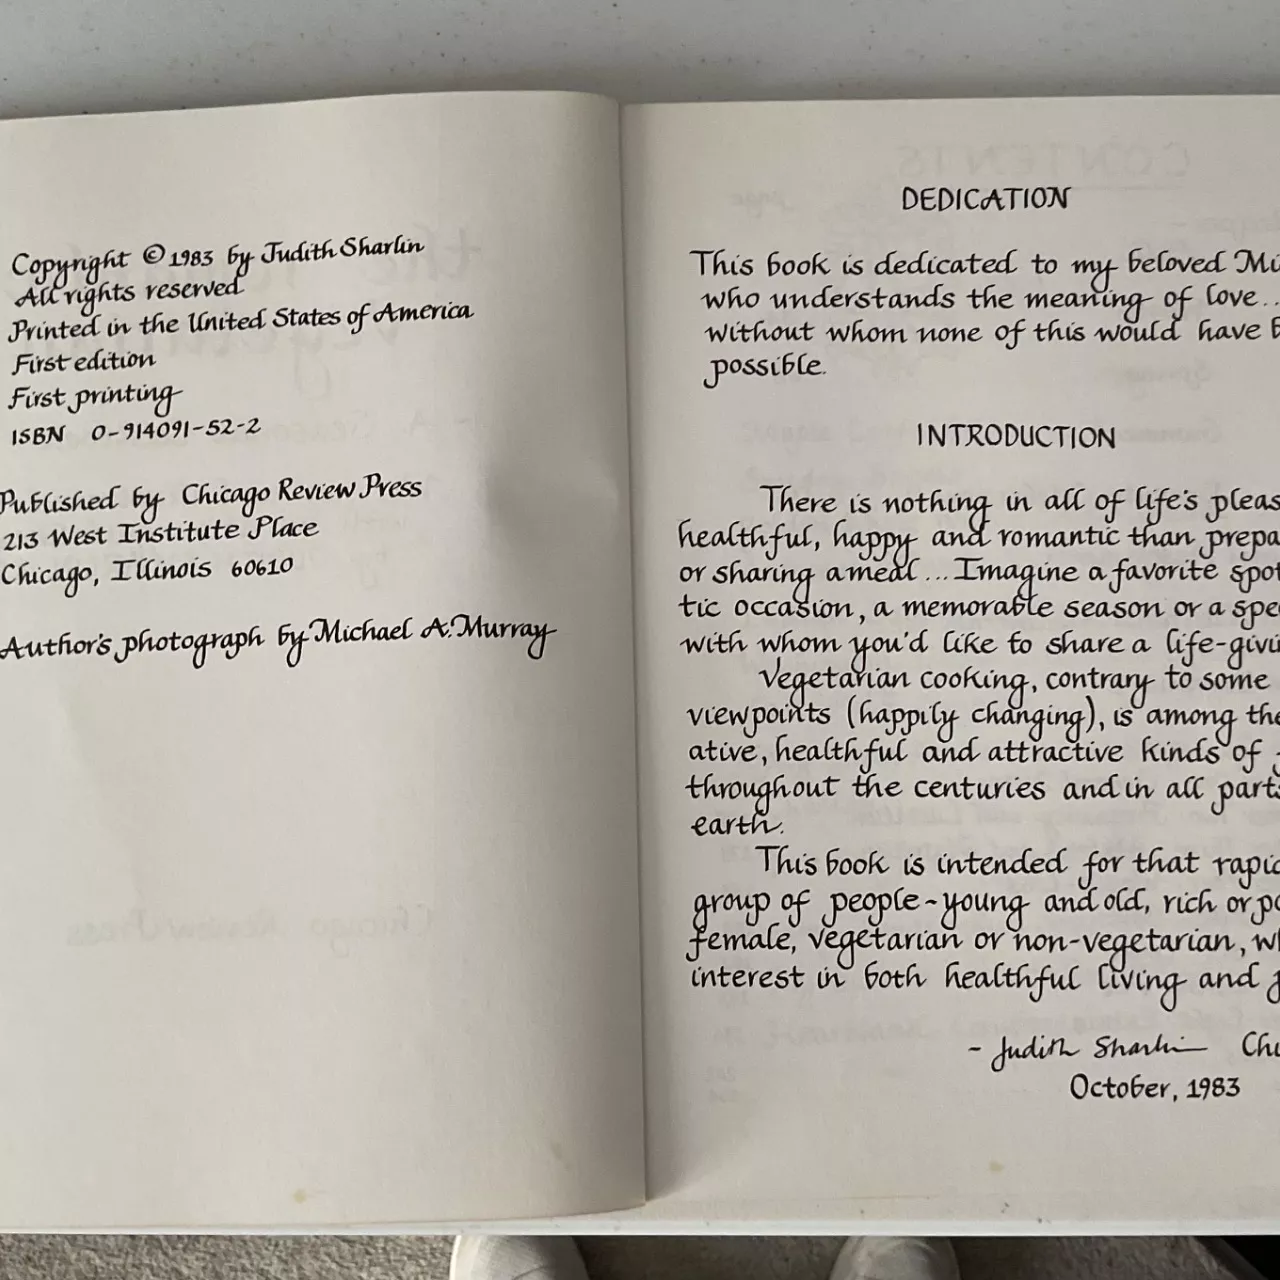 Copyright © 1983 by Judith Sharlin
All rights reserved
Printed in the United States of America
First edition
First printing
ISBN 0-914091-52-2
Published by Chicago Review Press
213 West Institute Place
Chicago, Illinois 60610
Author's photograph by Michael A. Murray
DEDICATION
This book is dedicated to my beloved Mi
who understands the meaning of love...
without whom none of this would have b
possible.
INTRODUCTION
There is nothing in all of life's pleas
healthful, happy and romantic than prepa
or sharing a meal... Imagine a favorite spot
tic occasion, a memorable season or a spe
with whom you'd like to share a life-givi
Vegetarian cooking, contrary to some
viewpoints (happily changing), is among the
ative, healthful and attractive kinds of
throughout the centuries and in all parts
earth.
This book is intended for that rapid
group of people~young and old, rich or po
female, vegetarian or non-vegetarian, wh
interest in both healthful living and
- Judith Sharlin Chi
October, 1983